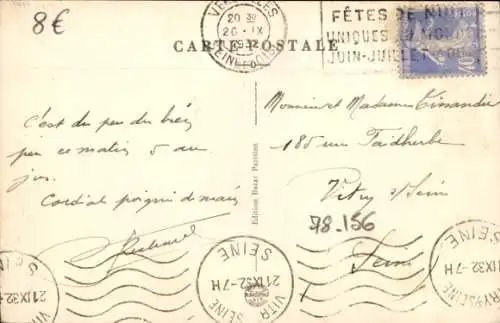 8€
VERSAILLES
20 30
20 - IX
1932
SEINE ET OISE
FÊTES DE NUIT
UNIQUES AU MONDE
JUIN-JUILLET-AOUT
CARTE POSTALE
Monsieur et Madame Tissandié
185 rue Faidherbe
Vitry s/Seine
Seine
78.156
C'est du peu du
pour ce matin 5 au
jus.
Cordial poignée de mains
Edition Bazar Parisien
SEINE
21 IX 32
VITRY
SEINE
21 IX 32 -7H
SEINE
VITRY S SEINE
21 IX 32 -7H